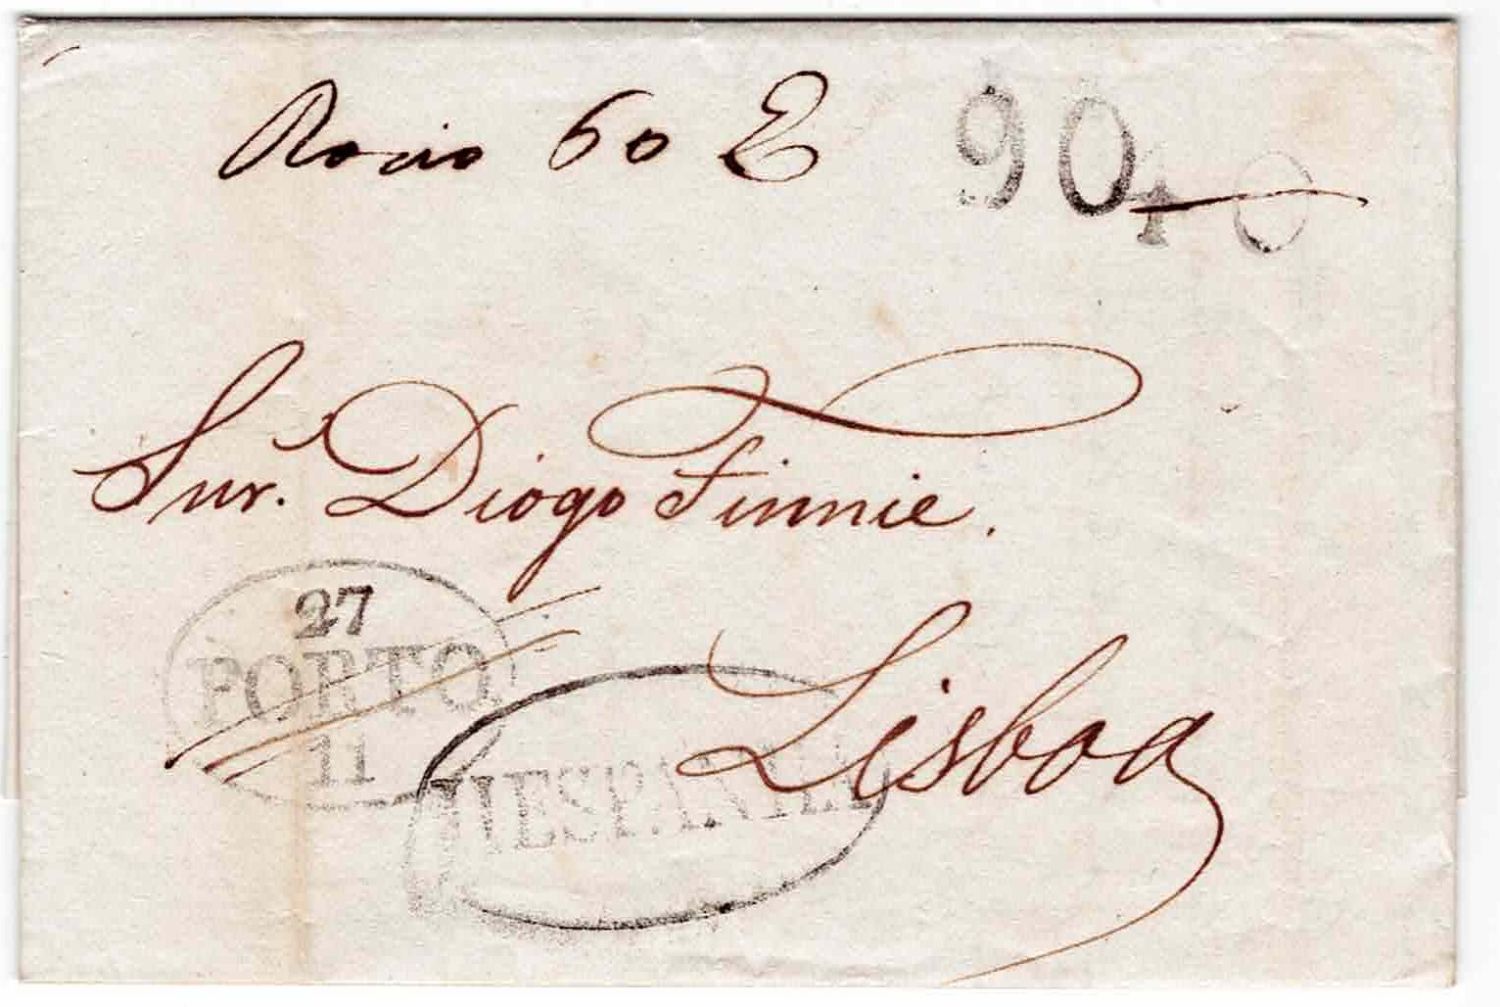 Rocio 60 E 90 40
Snr. Diogo Finnie.
27
PORTO
11
Lisboa
HESPANHA